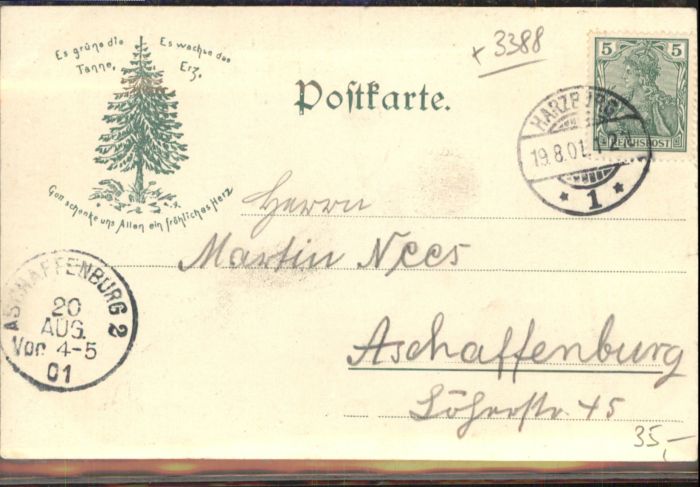 Es grüne die
Tanne,
Es wachse das
Erz,
Gott schenke uns Allen ein fröhliches Herz
+ 3388
5 5
REICHSPOST
Postkarte.
HARZBURG
19.8.01. 1-2
* 1 *
Herrn
Martin Nees
Aschaffenburg
Löherstr. 45
ASCHAFFENBURG 2
20
AUG.
Vor 4-5
01
35,-